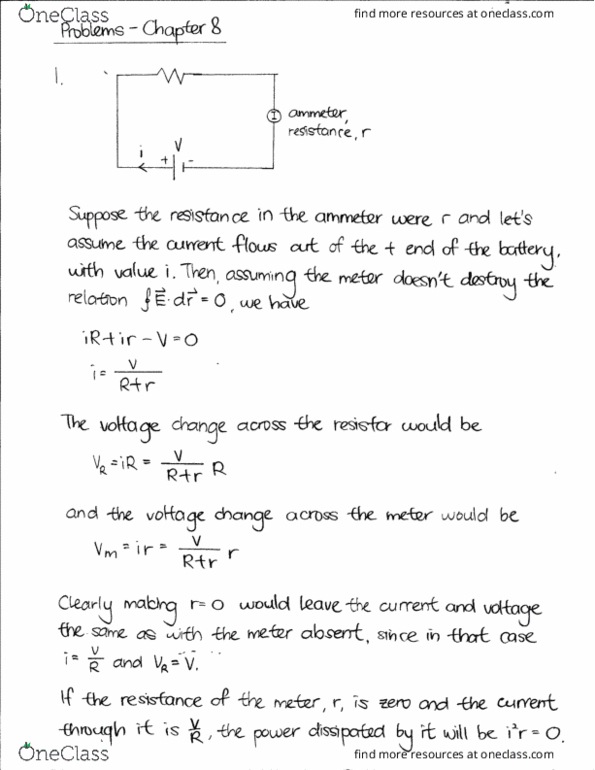 OneClass
find more resources at oneclass.com
Problems - Chapter 8
1.
I
ammeter,
resistance, r
i
V
+ -
Suppose the resistance in the ammeter were r and let's
assume the current flows out of the + end of the battery,
with value i. Then, assuming the meter doesn't destroy the
relation ∮E⃗·dr⃗ = 0, we have
iR + ir - V = 0
i = V / (R+r)
The voltage change across the resistor would be
V_R = iR = V / (R+r) R
and the voltage change across the meter would be
V_m = ir = V / (R+r) r
Clearly making r=0 would leave the current and voltage
the same as with the meter absent, since in that case
i = V/R and V_R = V.
If the resistance of the meter, r, is zero and the current
through it is V/R, the power dissipated by it will be i²r = 0.
OneClass
find more resources at oneclass.com